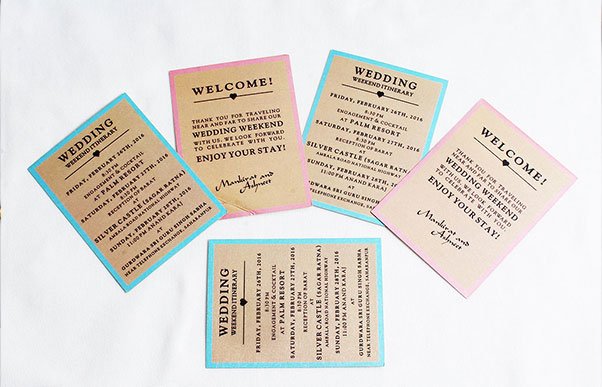 WEDDING
WEEKEND ITINERARY
FRIDAY, FEBRUARY 26TH, 2016
6:30 PM
ENGAGEMENT & COCKTAIL
AT PALM RESORT
SATURDAY, FEBRUARY 27TH, 2016
5:30 PM
RECEPTION OF BARAT
AT
SILVER CASTLE (SAGAR RATNA)
AMBALA ROAD NATIONAL HIGHWAY
SUNDAY, FEBRUARY 28TH, 2016
11:00 PM ANAND KARAJ
AT
GURDWARA SRI GURU SINGH SABHA
NEAR TELEPHONE EXCHANGE, SAHARANPUR
WELCOME!
THANK YOU FOR TRAVELING
NEAR AND FAR TO SHARE OUR
WEDDING WEEKEND
WITH US. WE LOOK FORWARD
TO CELEBRATE WITH YOU.
ENJOY YOUR STAY!
Mankirat and
WEDDING
WEEKEND ITINERARY
FRIDAY, FEBRUARY 26TH, 2016
6:30 PM
ENGAGEMENT & COCKTAIL
AT PALM RESORT
SATURDAY, FEBRUARY 27TH, 2016
5:30 PM
RECEPTION OF BARAT
AT
SILVER CASTLE (SAGAR RATNA)
AMBALA ROAD NATIONAL HIGHWAY
SUNDAY, FEBRUARY 28TH, 2016
11:00 PM ANAND KARAJ
AT
GURDWARA SRI GURU SINGH
NEAR TELEPHONE EXCHANGE,
WELCOME!
THANK YOU FOR TRAVELING
NEAR AND FAR TO SHARE OUR
WEDDING WEEKEND
WITH US. WE LOOK FORWARD
TO CELEBRATE WITH YOU.
ENJOY YOUR STAY!
Mankirat and
WEDDING
WEEKEND ITINERARY
FRIDAY, FEBRUARY 26TH, 2016
6:30 PM
ENGAGEMENT & COCKTAIL
AT PALM RESORT
SATURDAY, FEBRUARY 27TH, 2016
5:30 PM
RECEPTION OF BARAT
AT
SILVER CASTLE (SAGAR RATNA)
AMBALA ROAD NATIONAL HIGHWAY
SUNDAY, FEBRUARY 28TH, 2016
11:00 PM ANAND KARAJ
AT
GURDWARA SRI GURU SINGH SABHA
NEAR TELEPHONE EXCHANGE, SAHARANPUR